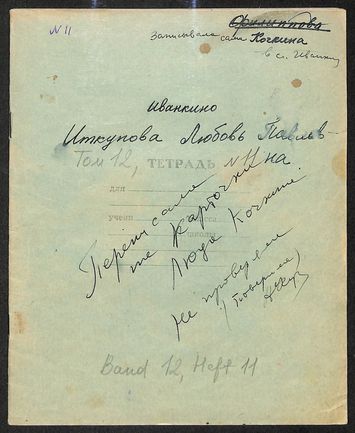 N 11
Филиппова
Записывала сама Кочкина
в с. Иванкино
Иванкино
Иткупова Любовь Павлов-
на
Том 12, ТЕТРАДЬ N 11
для
учени класса
школы
Переписала
на карточки
Люда Кочкина
Не проверяли
(Поверили)
Band 12, Heft 11